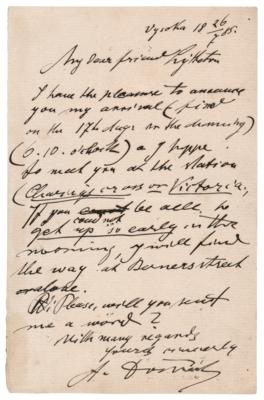 Vysoka 18 26/7 85.
My dear friend Littleton
I have the pleasure to announce
you my arrival (fixed
on the 17th days in the morning)
(6-10. o'clock) a I hoppe
to meet you at the station
Charing cross or Victoria.
If you could not be able to
get up so early in the
morning, I will find
the way at Berners street
alone.
Please, will you sent
me a word?
With many regards
yours sincerely